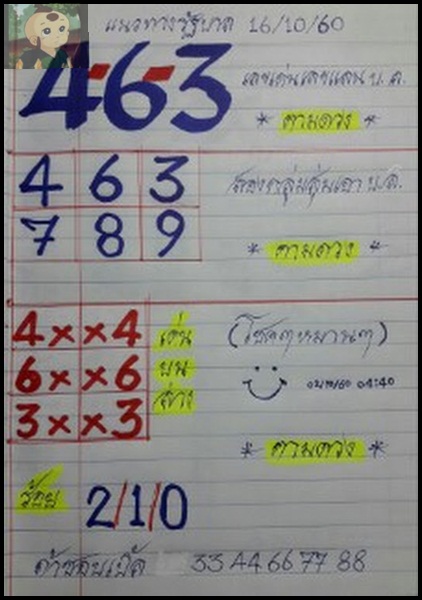 แนวทางรัฐบาล 16/10/60
4-6-3
เลขเด่นเลขแถม บ.ล.
* ตามดวง *
4 6 3
7 8 9
สองกลุ่มสุ่มเอา บ.ล.
* ตามดวง *
4×  ×4
6×  ×6
3×  ×3
เด่น
บน
ล่าง
(โชคๆหมานๆ)
04:40
* ตามดวง *
ร้อย
2/1/0
ถ้าชอบเบิ้ล 33 44 66 77 88